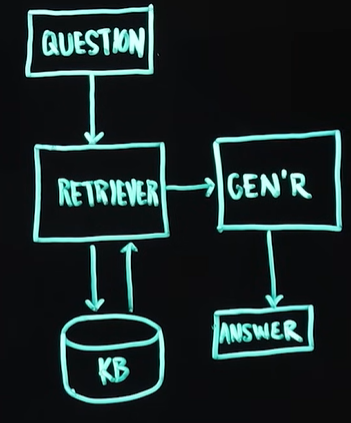 QUESTION
RETRIEVER
GEN'R
KB
ANSWER